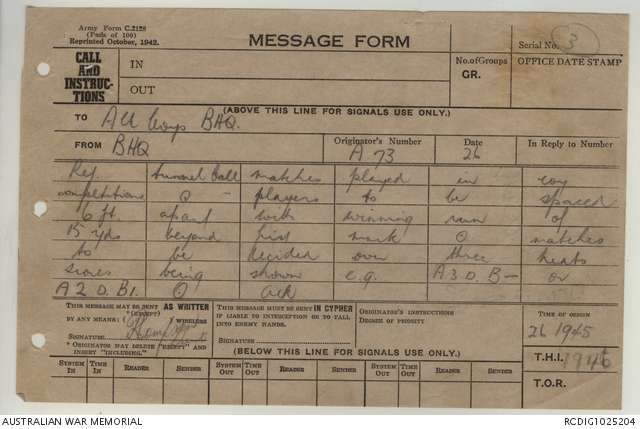 Army Form C.2128
(Pads of 100)
Reprinted October, 1942.
MESSAGE FORM
Serial No. 3
CALL AND INSTRUCTIONS
IN
OUT
No. of Groups
GR.
OFFICE DATE STAMP
(ABOVE THIS LINE FOR SIGNALS USE ONLY.)
TO All Coys BHQ.
FROM BHQ
Originator's Number
A 73
Date
26
In Reply to Number
Ref. tunnel ball matches played in coy
competitions O - players to be spaced
6 ft. apart with winning run of
15 yds beyond first mark O matches
to be decided over three heats
scores being shown e.g. A3 D. B- or
A2 D. B1. O ack
THIS MESSAGE MAY BE SENT AS WRITTEN
BY ANY MEANS: (*(EXCEPT) WIRELESS
SIGNATURE
* ORIGINATOR MAY DELETE "EXCEPT" AND INSERT "INCLUDING."
THIS MESSAGE MUST BE SENT IN CYPHER
IF LIABLE TO INTERCEPTION OR TO FALL
INTO ENEMY HANDS.
SIGNATURE
ORIGINATOR'S INSTRUCTIONS
DEGREE OF PRIORITY
TIME OF ORIGIN
26 1945
T.H.I. 1946
T.O.R.
(BELOW THIS LINE FOR SIGNALS USE ONLY.)
SYSTEM IN TIME IN READER SENDER SYSTEM OUT TIME OUT READER SENDER SYSTEM OUT TIME OUT READER SENDER
AUSTRALIAN WAR MEMORIAL
RCDIG1025204